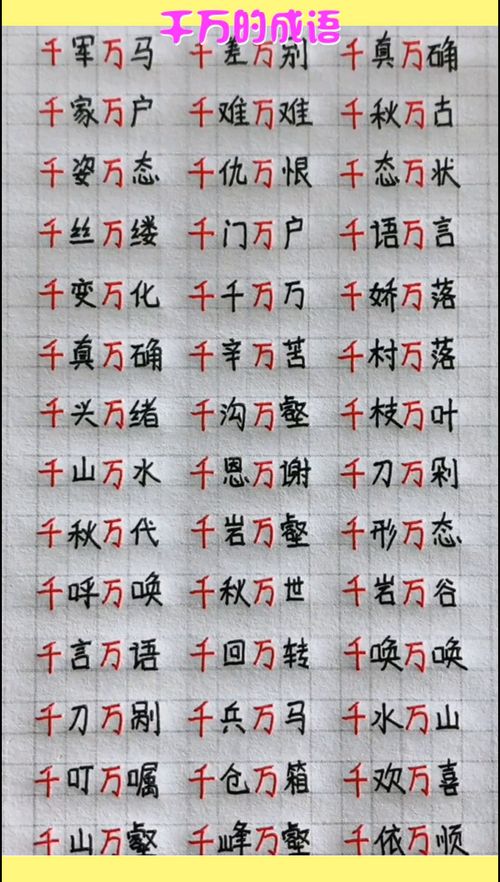 千万的成语
千军万马 千差万别 千真万确
千家万户 千难万难 千秋万古
千姿万态 千仇万恨 千态万状
千丝万缕 千门万户 千语万言
千变万化 千千万万 千娇万落
千真万确 千辛万苦 千村万落
千头万绪 千沟万壑 千枝万叶
千山万水 千恩万谢 千刀万剁
千秋万代 千岩万壑 千形万态
千呼万唤 千秋万世 千岩万谷
千言万语 千回万转 千唤万唤
千刀万剐 千兵万马 千水万山
千叮万嘱 千仓万箱 千欢万喜
千山万壑 千峰万壑 千依万顺